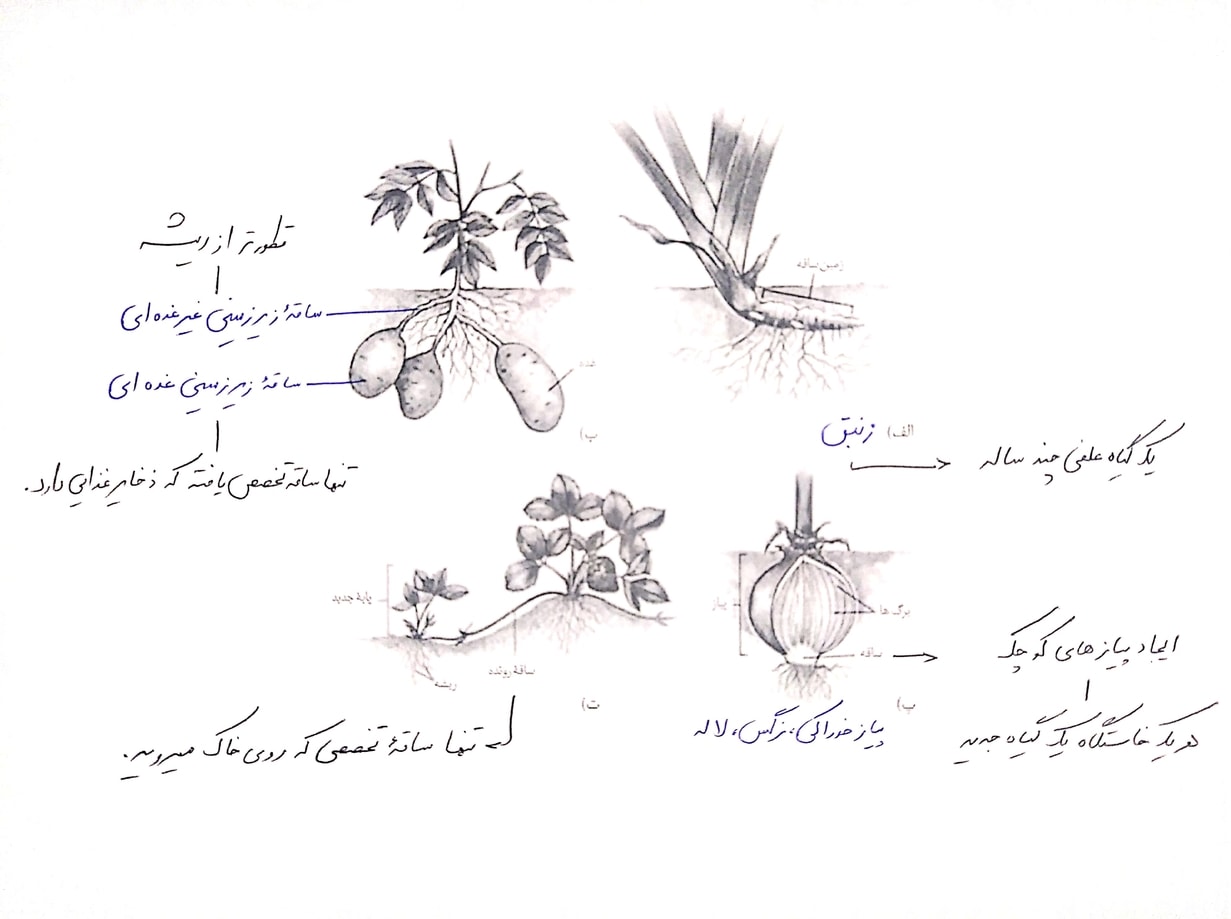 زمین ساقه
الف) زنبق
یک گیاه علفی چند ساله
قطورتر از ریشه
ساقهٔ زیرزمینی غیرغده‌ای
ساقهٔ زیرزمینی غده‌ای
غده
ب)
تنها ساقهٔ تخصص یافته که ذخایر غذایی دارد.
برگ‌ها
پیاز
ساقه
ایجاد پیازهای کوچک
هر یک خاستگاه یک گیاه جدید
پ)
پیاز خوراکی، نرگس، لاله
پایهٔ جدید
ساقهٔ رونده
ریشه
ت)
تنها ساقهٔ تخصصی که روی خاک میروید.